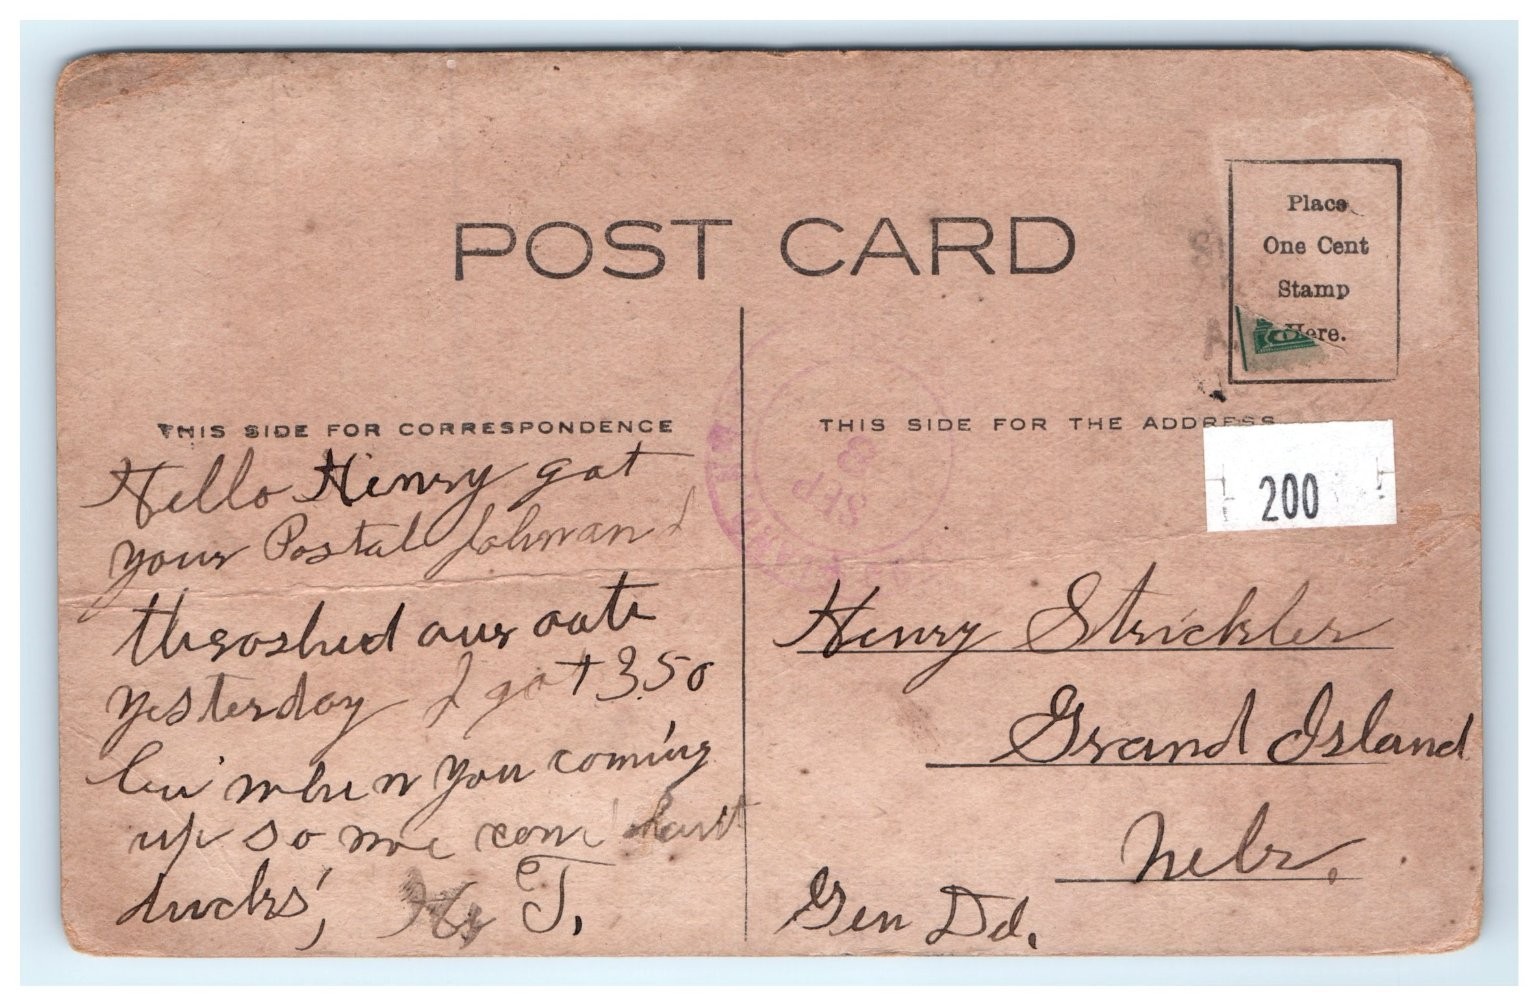 POST CARD
Place
One Cent
Stamp
Here.
THIS SIDE FOR CORRESPONDENCE
Hello Henry got
your Postal
throshed our oats
yesterday I got 350
bu' when you coming
up so we can hunt
ducks', H. T.
THIS SIDE FOR THE ADDRESS
200
8
SEP
Henry Strickler
Grand Island
Nebr.
Gen Dd.